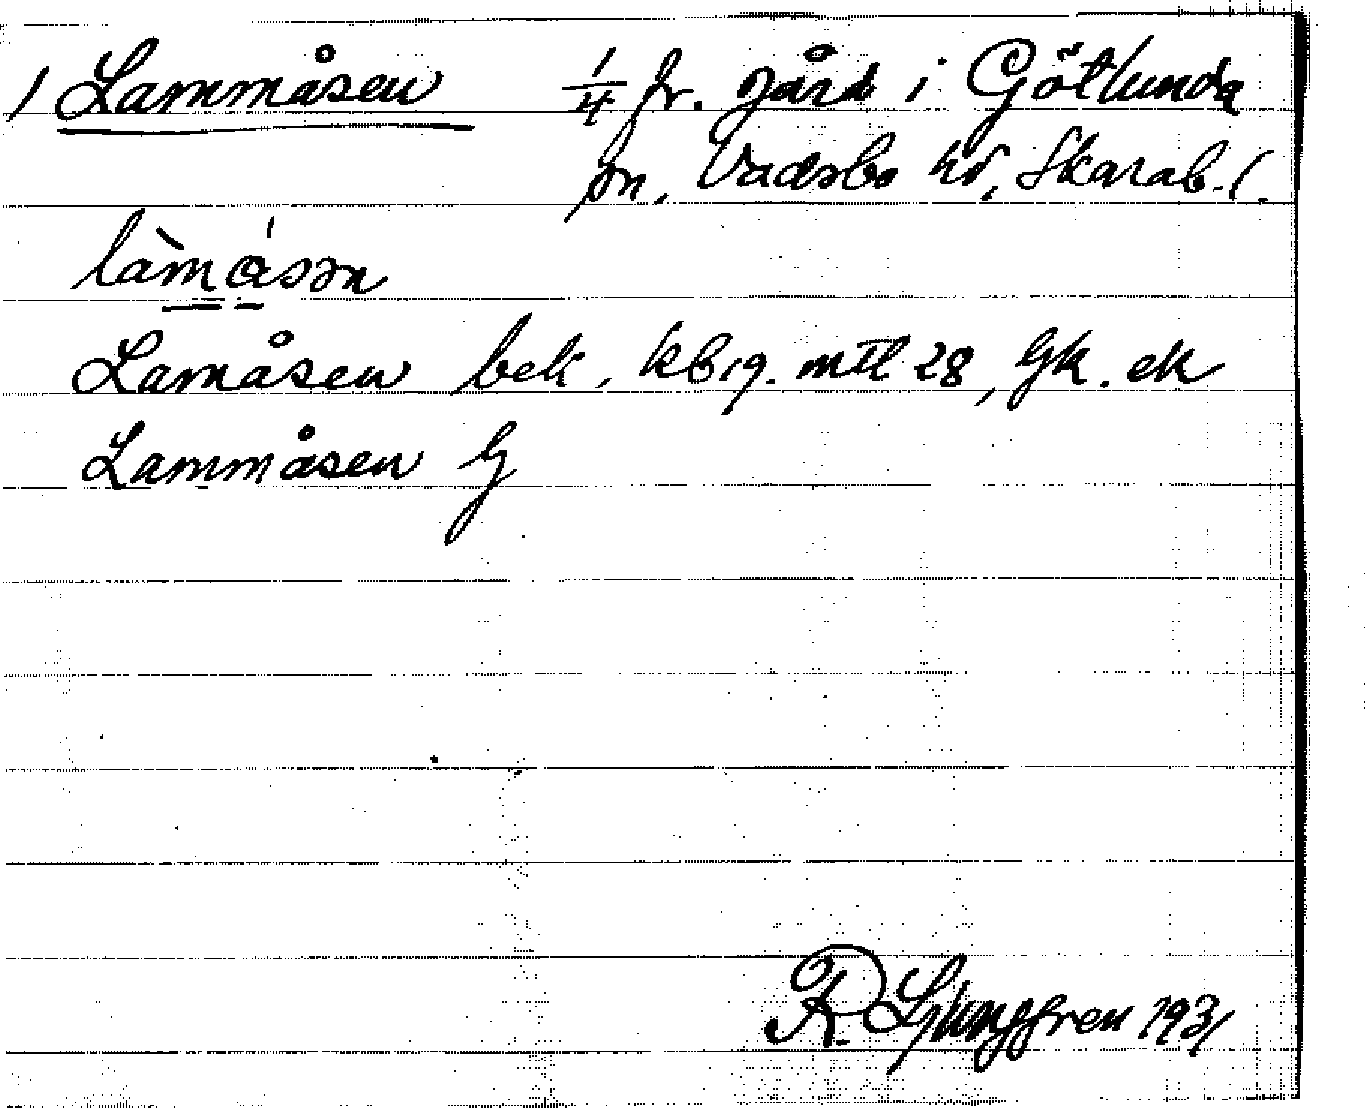 1 Lammåsen 1/4 fr. gård i Götlunda
sn, Vadsbo hd, Skarab. l.
làmåsən
Lamåsen bek, kb 19. mtl 28, Gk. ek
Lammåsen G
R Ljunggren 1931